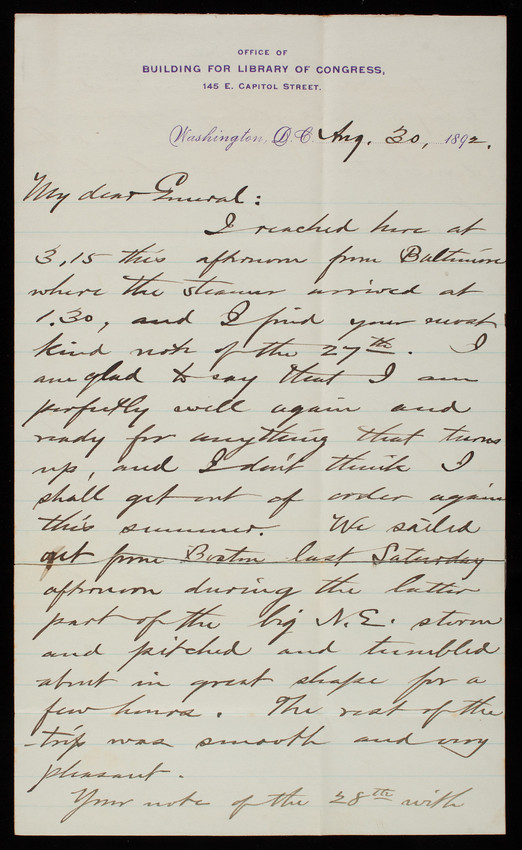 OFFICE OF
BUILDING FOR LIBRARY OF CONGRESS,
145 E. CAPITOL STREET.
Washington, D.C. Aug. 30, 1892.
My dear General:
I reached here at
3,15 this afternoon from Baltimore
where the steamer arrived at
1.30, and I find your most
kind note of the 27th. I
am glad to say that I am
perfectly well again and
ready for anything that turns
up, and I don't think I
shall get out of order again
this summer. We sailed
out from Boston last Saturday
afternoon during the latter
part of the big N.E. storm
and pitched and tumbled
about in great shape for a
few hours. The rest of the
trip was smooth and very
pleasant.
Your note of the 28th with